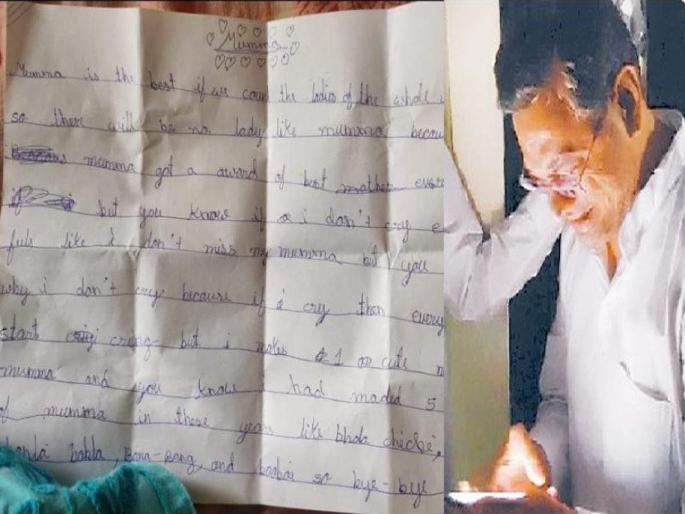 Mumma
Mumma is the best if we coun the ladies of the whole
so there will be no lady like mumma becau
mumma got a award of best mother ever
if but you know if i don't cry e
feels like I don't miss my mumma but you
why i don't cry because if i cry then every
start criing but i makes 1 or cute m
mumma and you know i had maded 5
of mumma in these years like bhola chichi,
babla, and so bye-bye